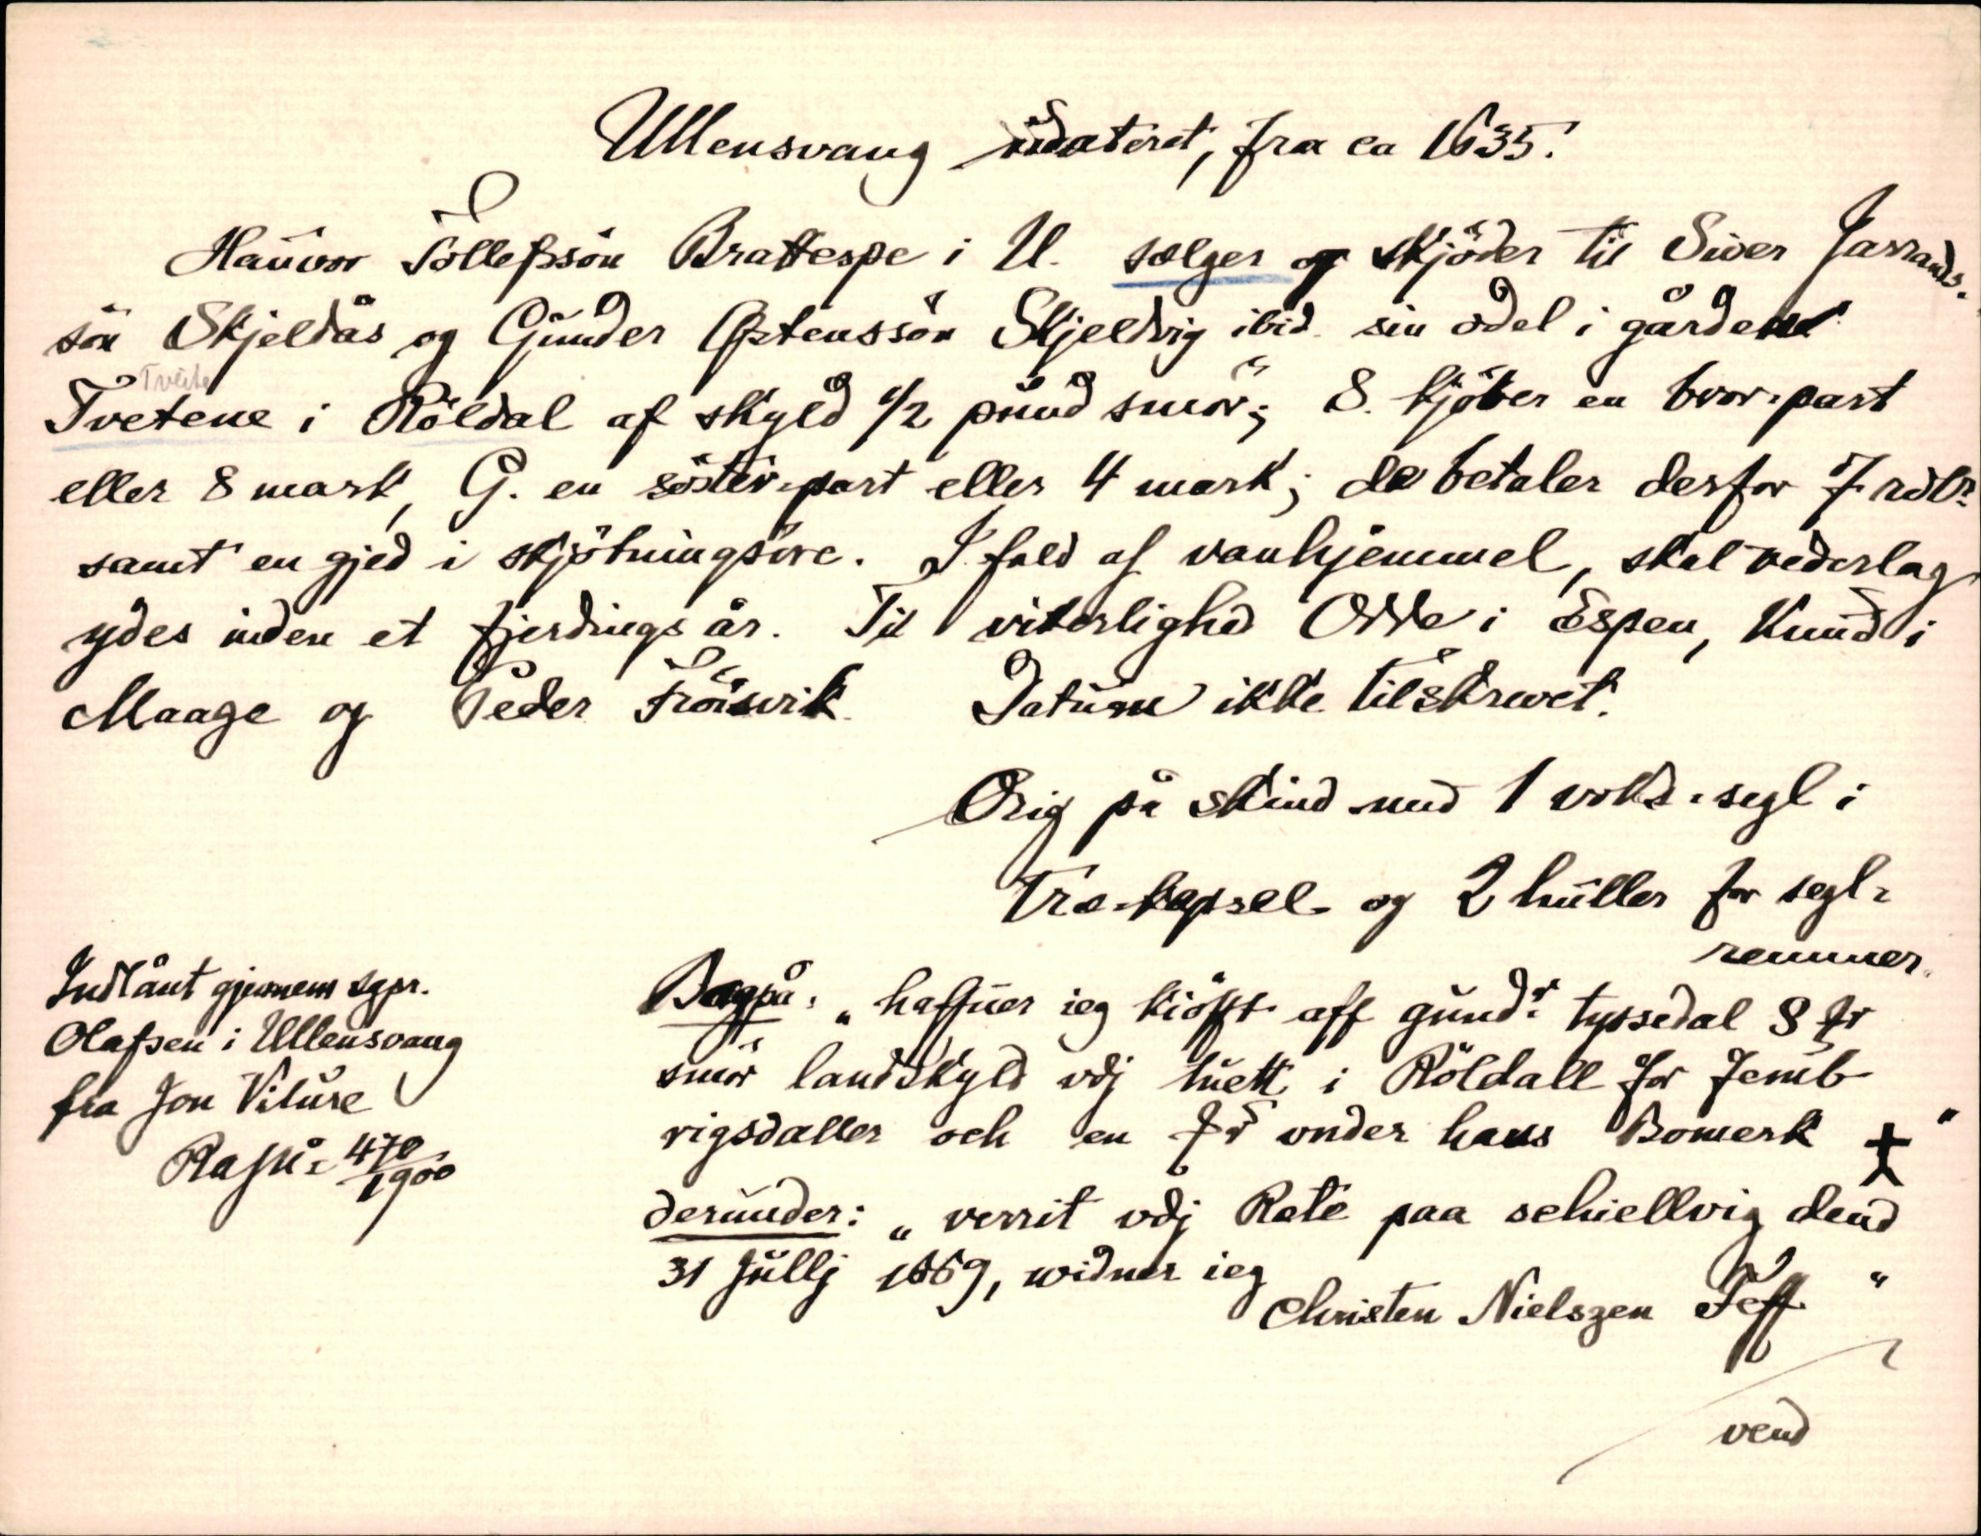 Ullensvang udateret, fra ca 1635.
Hauvor Tollefssön Brattespe i U. sælger og skjöder til Siver Jarrands-
sön Skjeldås og Gunder Östenssön Skjeldvig ibid. sin odel i gården
Tveite
Tvetene i Röldal af skyld 1/2 pund smör; S. kjöber en bror-part
eller 8 mark, G. en söster-part eller 4 mark; de betaler derfor 7 rdlr
samt en gjed i skjötningsöre. I fald af vanhjemmel, skal vederlag
ydes inden et fjerdings år. Til vitterlighed Odde i Espen, Knud i
Maage og Peder Fröisvik. Datum ikke tilskrevet.
Orig på skind med 1 voks-segl i
træ-kapsel og 2 huller for segl-
remmer.
Indlånt gjennem sgpr.
Olafsen i Ullensvang
fra Jon Vilure
Ra jnr 470/1900
Bagpå: „haffuer ieg kiöfft aff gundr tyssedal 8 
smör landskyld vdj tuett i Röldall for femb
rigsdaller och en under hans Bomerk "
derunder: „verrit vdj Rete paa schiellvig dend
31 Jullj 1669, widner ieg
Christen Nielszen "
vend